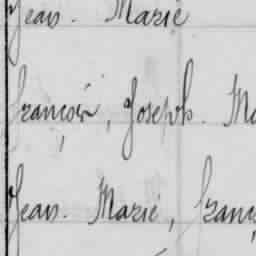 Jean - Marie
François, Joseph. Ma
Jean - Marie, Franç